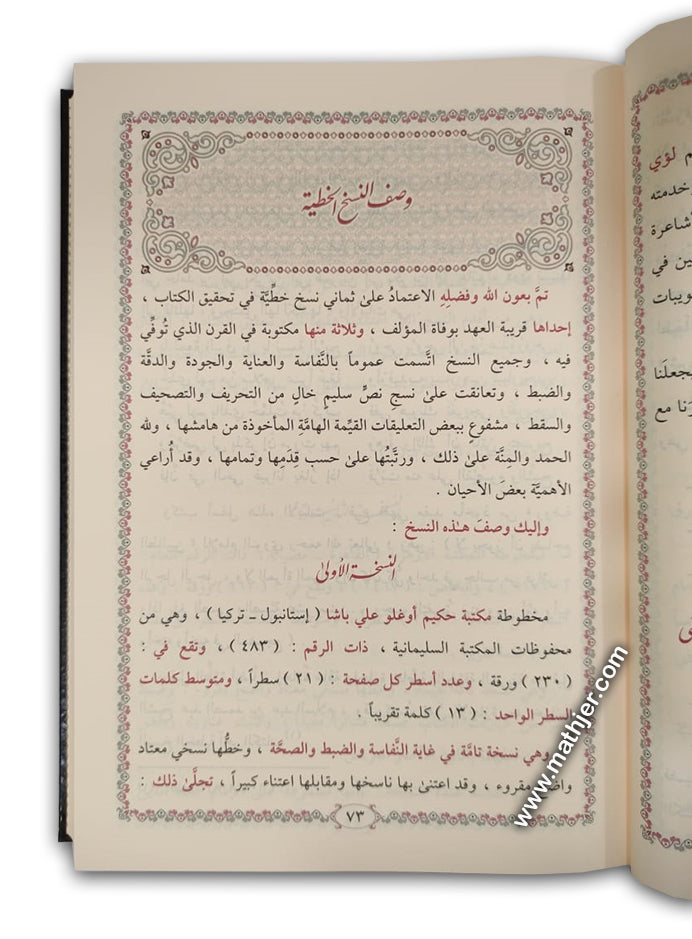 وصف النسخ الخطية
تمَّ بعون الله وفضلِهِ الاعتمادُ علىٰ ثماني نسخ خطِّيَّة في تحقيق الكتاب ،
إحداها قريبة العهد بوفاة المؤلف ، وثلاثة منها مكتوبة في القرن الذي تُوفِّي
فيه ، وجميع النسخ اتَّسمت عموماً بالنَّفاسة والعناية والجودة والدقَّة
والضبط ، وتعانقت علىٰ نسجِ نصٍّ سليمٍ خالٍ من التحريف والتصحيف
والسقط ، مشفوعٍ ببعض التعليقات القيِّمة الهامَّةِ المأخوذة من هامشها ، ولله
الحمد والمِنَّة علىٰ ذلك ، ورتَّبتُها علىٰ حسب قِدَمِها وتمامها ، وقد أُراعي
الأهميَّة بعضَ الأحيان .
وإليك وصفَ هـٰذه النسخ :
النسخة الأولىٰ
مخطوطة مكتبة حكيم أوغلو علي باشا ( إستانبول ـ تركيا ) ، وهي من
محفوظات المكتبة السليمانية ، ذات الرقم : ( ٤٨٣ ) ، وتقع في :
( ٢٣٠ ) ورقة ، وعدد أسطر كل صفحة : ( ٢١ ) سطراً ، ومتوسط كلمات
السطر الواحد : ( ١٣ ) كلمة تقريباً .
وهي نسخة تامَّة في غاية النَّفاسة والضبط والصحَّة ، وخطُّها نسخي معتاد
مقروء ، وقد اعتنىٰ بها ناسخها ومقابلها اعتناء كبيراً ، تجلَّىٰ ذلك :
٧٣
لؤي
خدمته
شاعرة
ين في
ويبات
جعلَنا
رَنا مع
www.mathjer.com